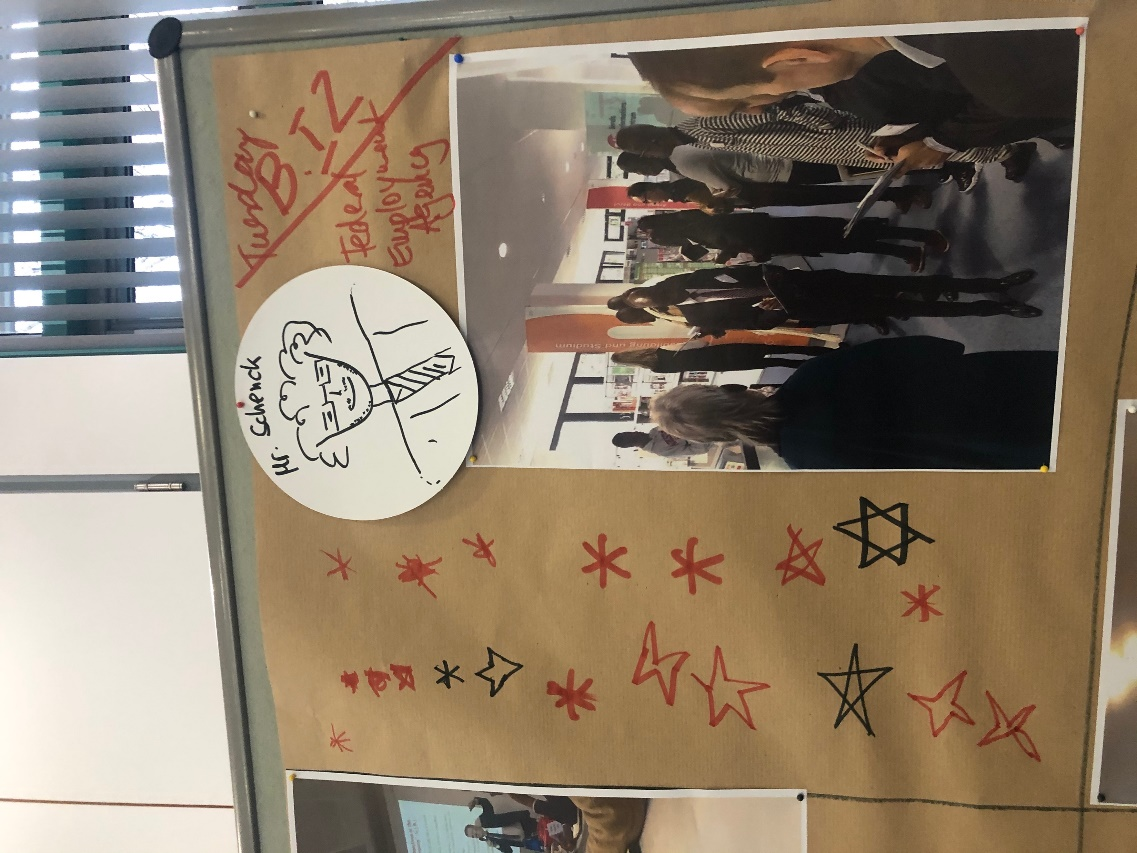 Tuesday
BiZ
Federal
Employment
Agency
Hr. Schenck
und Studium